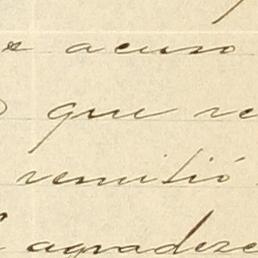 acuso
que re
remitió
agradeze